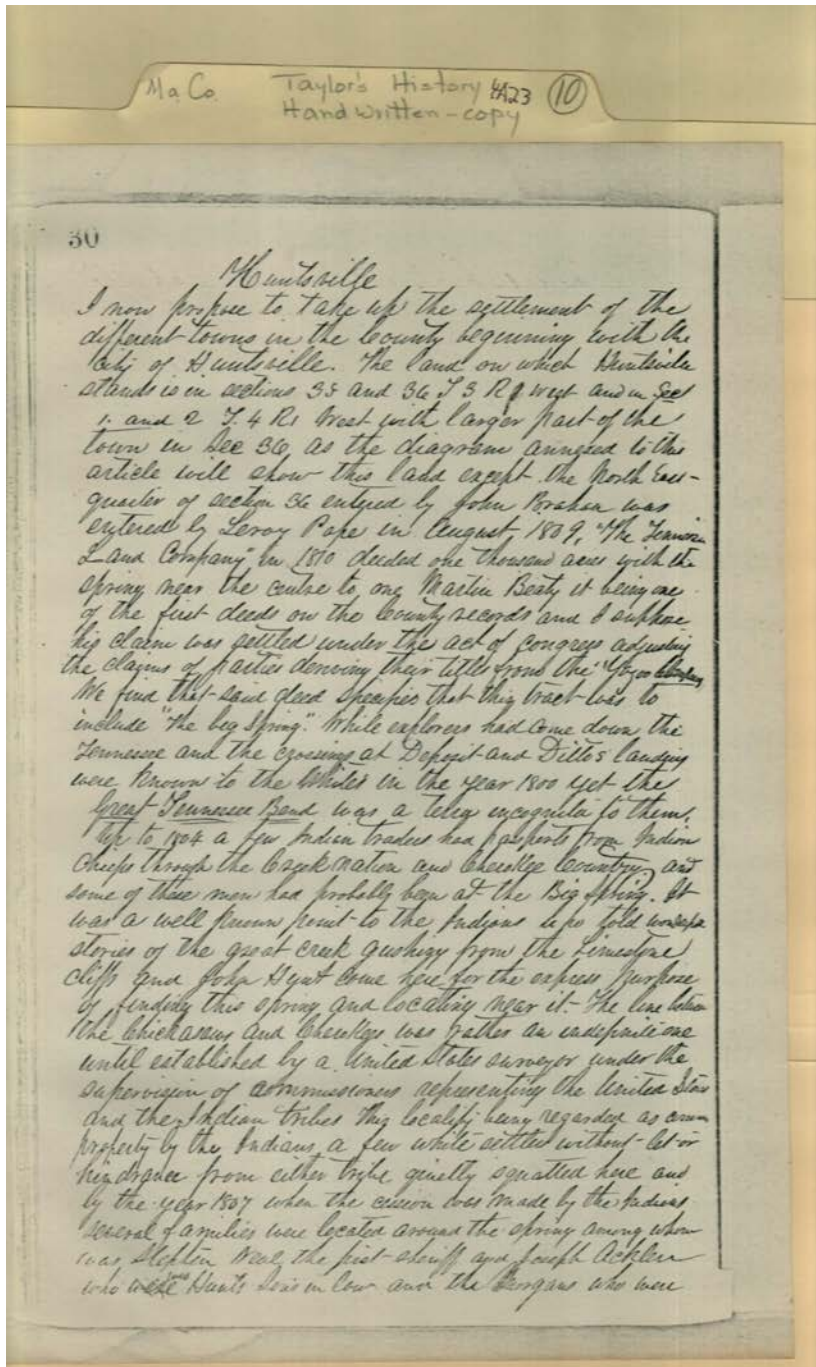 Ma. Co. Taylor's History 4A23 10
Handwritten - copy
30
Huntsville
I now propose to take up the settlement of the
different towns in the County beginning with the
City of Huntsville. The land on which Huntsville
stands is in sections 35 and 36 T 3 R 1 west and in Sect
1. and 2 T. 4 R1 West with larger part of the
town in Sec 36, as the diagram annexed to this
article will show this land except the North East
quarter of section 36 entered by John Brahan was
entered by Leroy Pope in August, 1809, "The Tennessee
Land Company" in 1810 deeded one thousand acres with the
spring near the centre to one Martin Beaty it being one
of the first deeds on the County records and I suppose
his claim was settled under the act of congress adjusting
the claims of parties deriving their titles from the "Yazoo
We find that said deed specifies that this tract was to
include "The big Spring". While explorers had come down the
Tennessee and the crossings at Deposit and Dittos landing
were known to the Whites in the year 1800 yet the
Great Tennessee Bend was a terra incognita to them.
Up to 1804 a few Indian traders had passports from Indian
Chiefs through the Creek Nation and Cherokee Country, and
some of these men had probably been at the Big Spring. It
was a well known point to the Indians who told
stories of the great creek gushing from the Limestone
cliffs and John Hunt come here for the express purpose
of finding this spring and locating near it. The line between
the Chickasaws and Cherokees was rather an indefinite one
until established by a United States surveyor under the
supervision of commissioners representing the United States
and the Indian tribes This locality being regarded as common
property by the Indians, a few white settlers without let or
hindrance from either tribe quietly squatted here and
by the year 1807 when the cession was made by the Indians
several families were located around the spring among whom
was Stephen Neal the first sheriff and Joseph Acklen
who were Hunts Sons in law and the Morgans who were